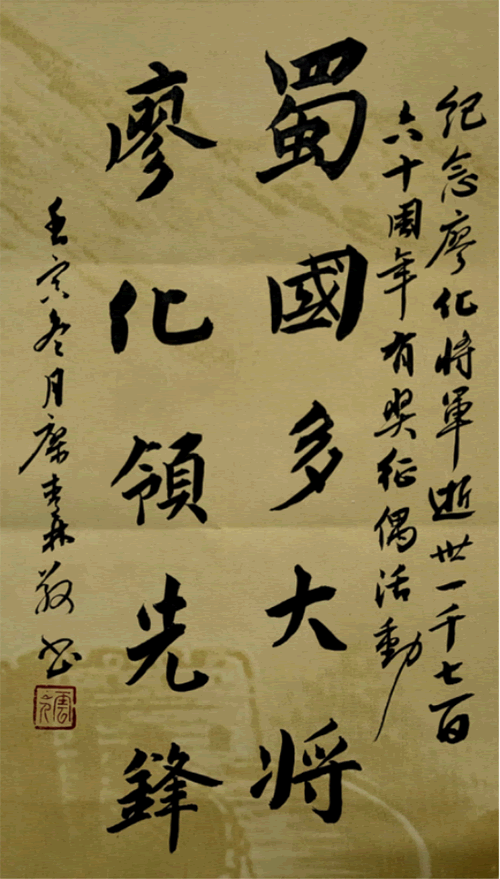 纪念廖化将军逝世一千七百
六十周年有奖征偶活動
蜀國多大将
廖化領先鋒
壬寅冬月廖吉森敬书